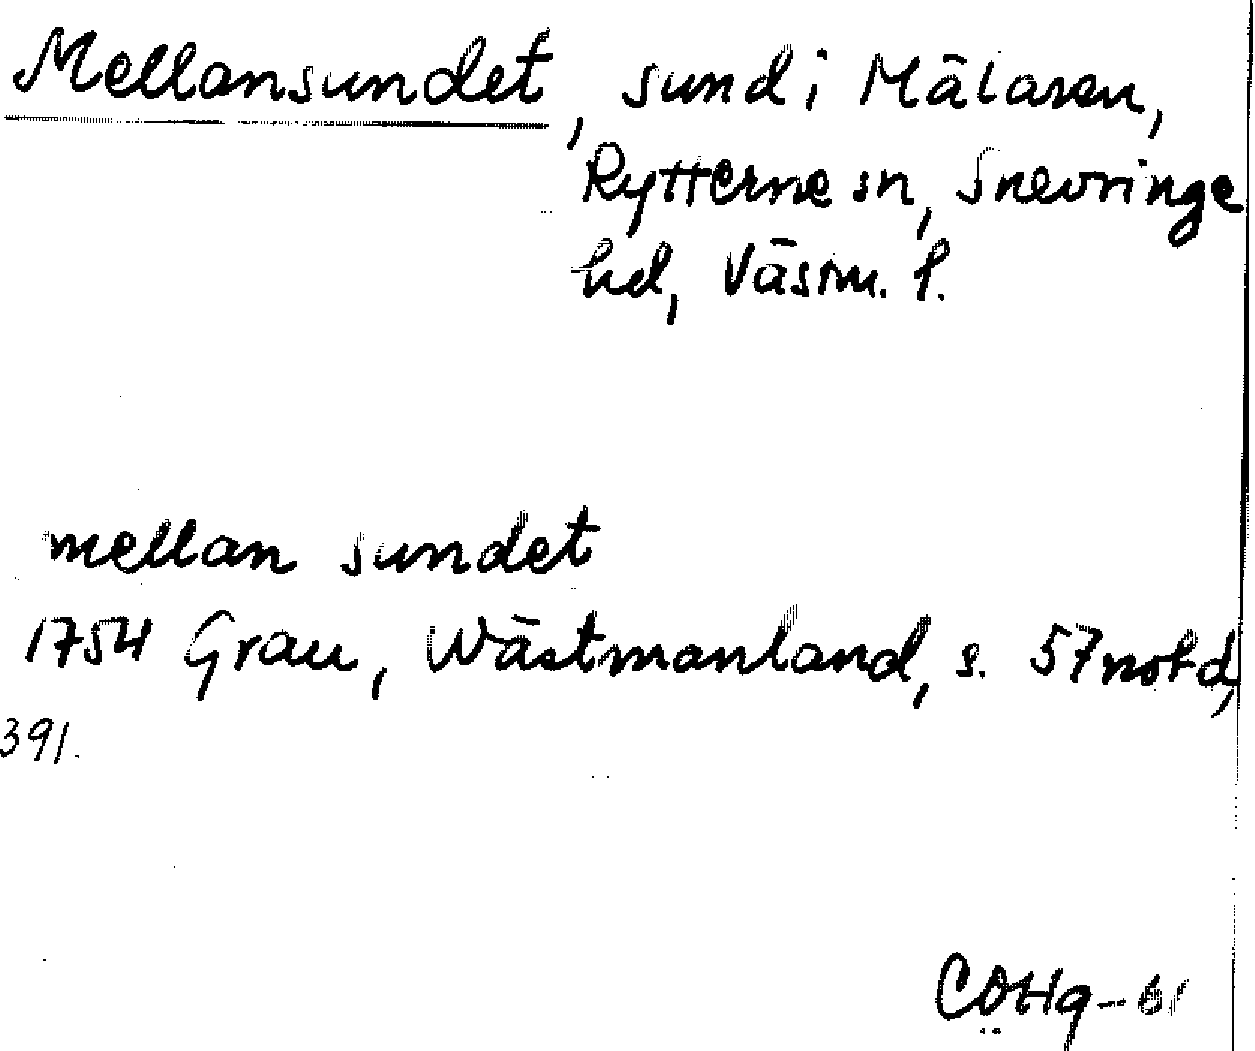 Mellansundet, sund i Mälaren,
Rytterne sn, Snevringe
hd, Västm. l.
mellan sundet
1754 Grau, Wästmanland, s. 57 not d,
391.
COHg-61